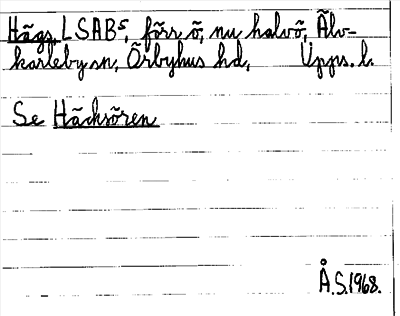 Hägs, LSABs, förr ö, nu halvö, Älv-
karleby sn, Örbyhus hd, Upps. l.
Se Hächsören
Å.S. 1968.